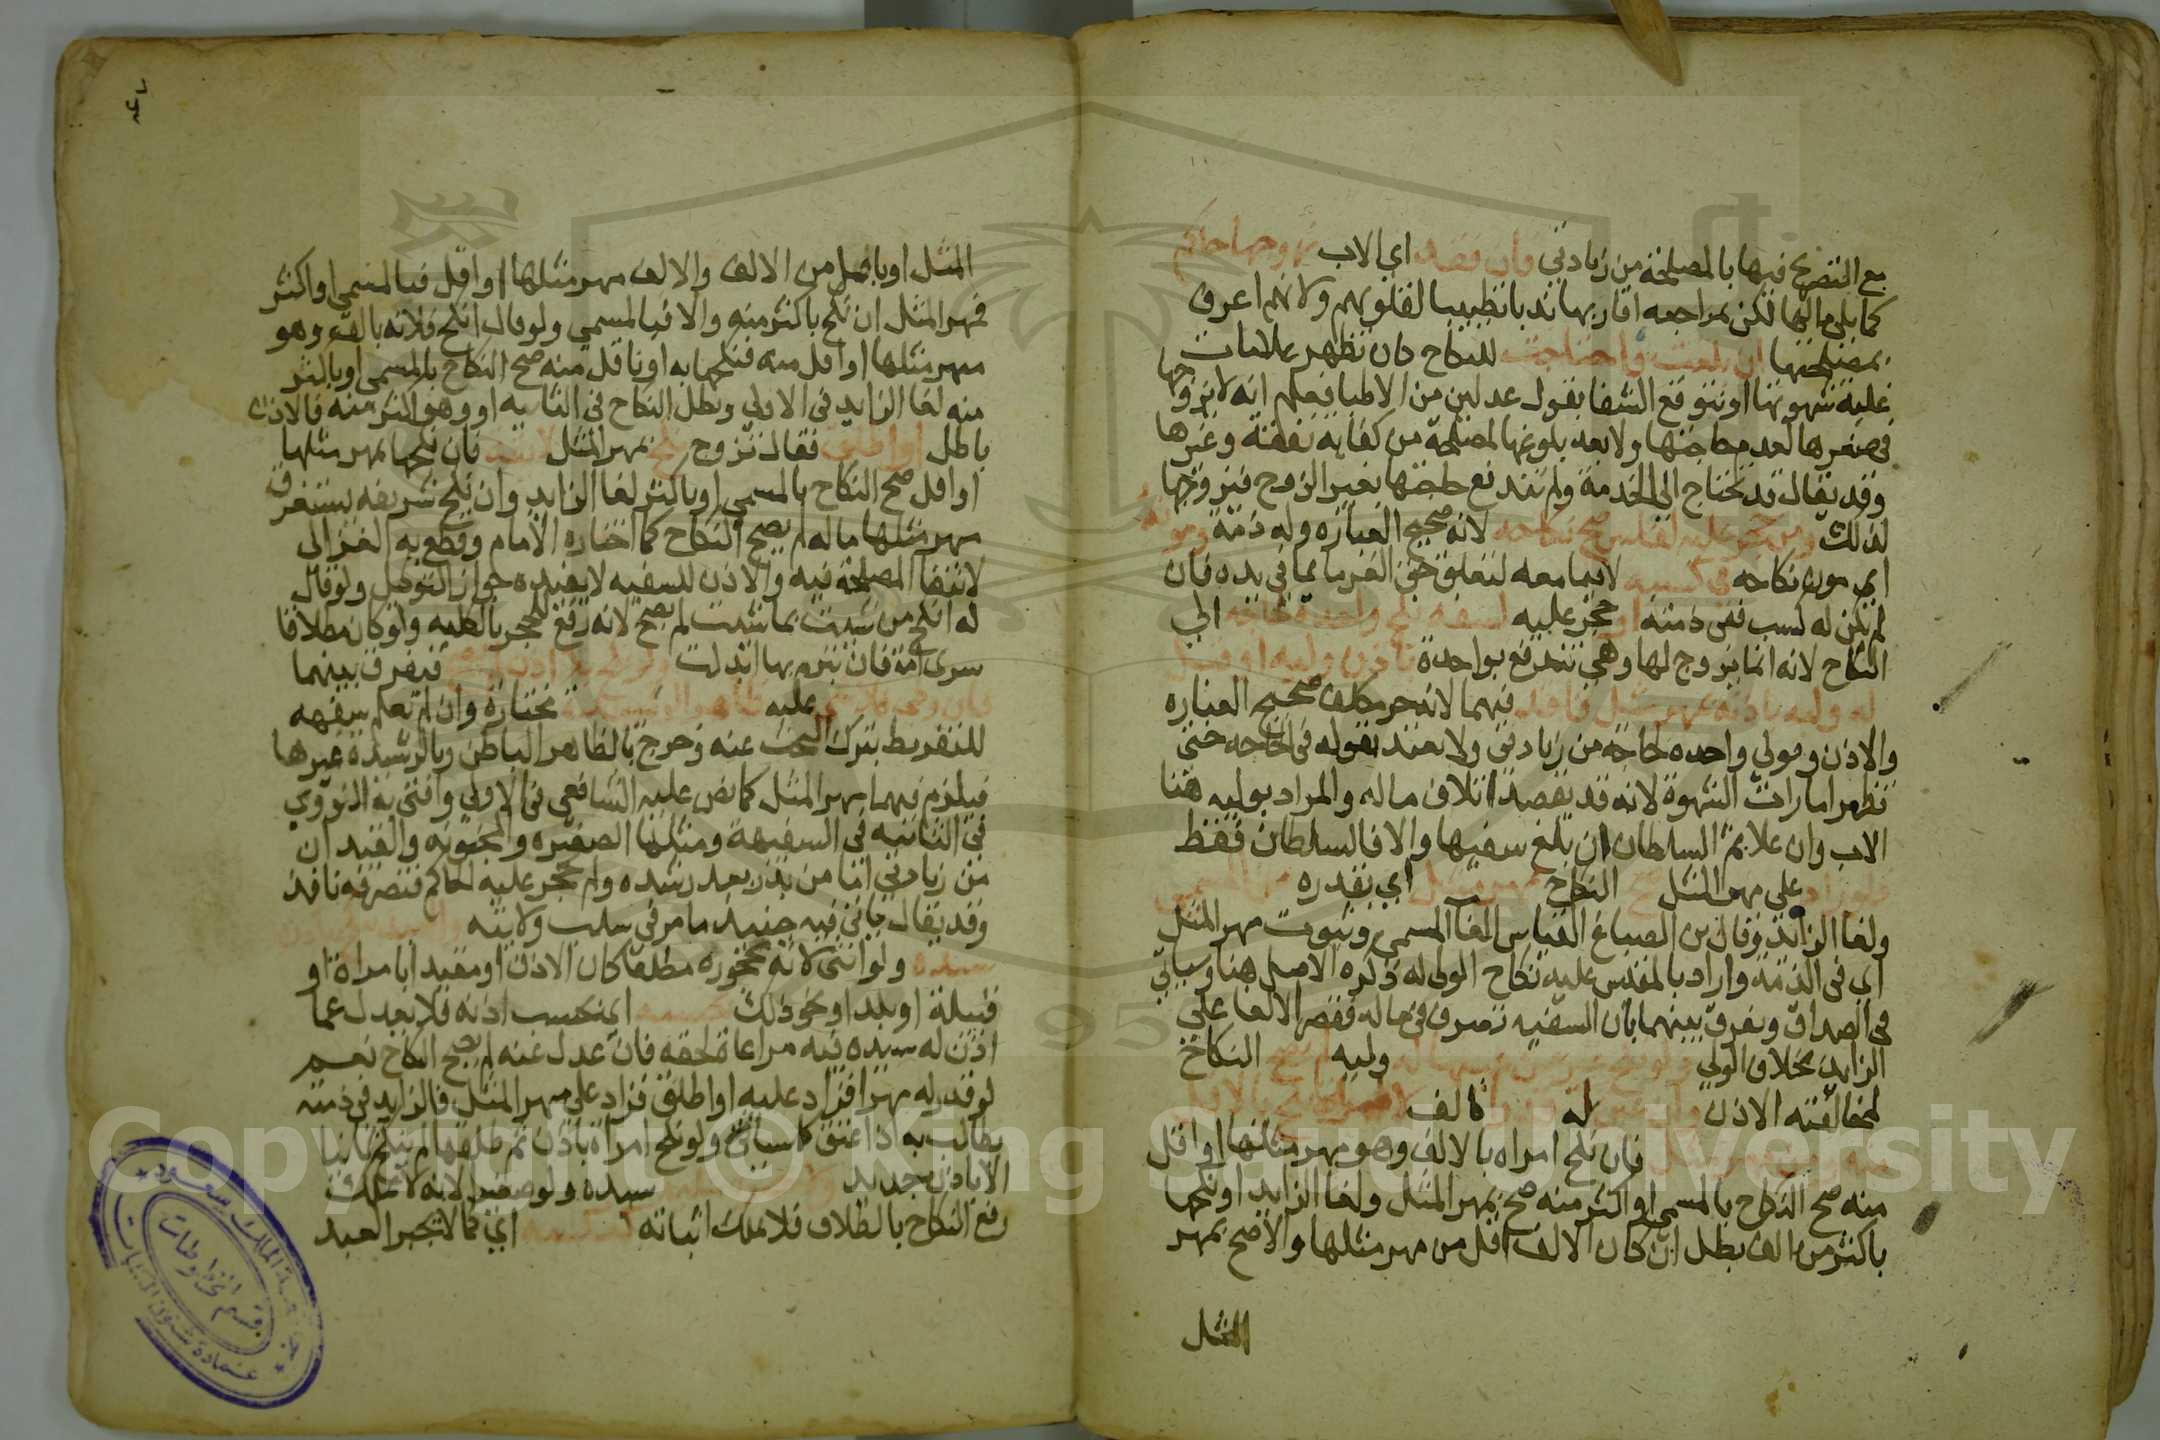 مع التصريح فيها بالمصلحة من زيادتي فان فقد اي الاب زوجها حاكم
كما يلي مالها لكن بمراجعة اقاربها ندبا تطييبا لقلوبهم ولانهم اعرف
بمصلحتها ان بلغت واحتاجت للنكاح كان تظهر علامات
غلبة شهوتها او يتوقع الشفا بقول عدلين من الاطبا فعلم انه لا يزوجها
في صغرها لعدم حاجتها ولا بعد بلوغها لمصلحة من كفاية نفقة وغيرها
وقد يقال قد تحتاج الى الخدمة ولم تندفع حاجتها بغير الزوج فيزوجها
لذلك ومن حجر عليه لفلس صح نكاحه لانه صحيح العبارة وله ذمة ومونه
اي مون نكاحه في كسبه لا فيما معه لتعلق حق الغرما بما في يده فان
لم يكن له كسب ففي ذمته او حجر عليه لسفه نكح واحدة لحاجة الى
النكاح لانه انما يزوج لها وهي تندفع بواحدة باذن وليه او قبل
له وليه باذنه بمهر مثل فاقل فيهما لانه حر مكلف صحيح العبارة
والاذن وقولي واحدة لحاجة من زيادتي ولا يعتد بقوله في الحاجة حتى
تظهر امارات الشهوة لانه قد يقصد اتلاف ماله والمراد بوليه هنا
الاب وان علا ثم السلطان ان بلغ سفيها والا فالسلطان فقط
فلو زاد على مهر المثل صح النكاح بمهر مثل اي بقدره من المسمى
ولغا الزايد وقال بن الصباغ القياس الغا المسمى وثبوت مهر المثل
اي في الذمة واراد بالمقيس عليه نكاح الولي له ذكره الاصل هنا وسياتي
في الصداق ويفرق بينهما بان السفيه تصرف في ماله فقصر الالغا على
الزايد بخلاف الولي ولو نكح غير من عينها له وليه لم يصح النكاح
لمخالفته الاذن له كالف
فان نكح امراة بالالف وهو مهر مثلها او اقل
منه صح النكاح بالمسمى او اكثر منه صح بمهر المثل ولغا الزايد او نكحها
باكثر من الف بطل ان كان الالف اقل من مهر مثلها والا صح بمهر
المثل
المثل او باقل من الالف والالف مهر مثلها او اقل فبالمسمى او اكثر
فمهر المثل ان نكح باكثر منه والا فبالمسمى ولو قال انكح فلانة بالف وهو
مهر مثلها او اقل منه فنكحها به او باقل منه صح النكاح بالمسمى او باكثر
منه لغا الزايد في الاولى وبطل النكاح في الثانية او وهو اكثر منه فالاذن
باطل او اطلق فقال تزوج نكح بمهر المثل لائقة فان نكحها بمهر مثلها
او اقل صح النكاح بالمسمى او باكثر لغا الزايد وان نكح شريفة يستغرق
مهر مثلها ماله لم يصح النكاح كما اختاره الامام وقطع به الغزالي
لانتفا المصلحة فيه والاذن للسفيه لا يفيده جواز التوكيل ولو قال
له انكح من شيت بما شيت لم يصح لانه رفع للحجر بالكلية ولو كان مطلاقا
سري امة فان تبرم بها ابدلت ولو نكح بلا اذن لم يصح فيفرق بينهما
فان وطئ فلا شي عليه ظاهرا لرشيدة مختارة وان لم تعلم سفهه
للتفريط بترك البحث عنه وخرج بالظاهر الباطن وبالرشيدة غيرها
فيلزم فيهما مهر المثل كما نص عليه الشافعي في الاولى وافتى به النووي
في الثانية في السفيهة ومثلها الصغيرة والمجنونة والقيدان
من زيادتي اما من بذر بعد رشده ولم يحجر عليه الحاكم فتصرفه نافذ
وقد يقال ياتي فيه حينيذ ما مر في سلب ولايته
سيده ولو انثى لانه محجوره مطلقا كان الاذن او مقيدا بامراة او
قبيلة او بلد او نحو ذلك بحسبه اي بحسب اذنه فلا يعدل عما
اذن له سيده فيه مراعاة لحقه فان عدل عنه لم يصح النكاح نعم
لو قدر له مهرا فزاد عليه او اطلق فزاد على مهر المثل فالزايد في ذمته
يطالب به اذا عتق كما سياتي ولو نكح امراة باذن ثم طلقها لم ينكح ثانيا
الا باذن جديد سيده ولو صغيرا لانه لا يملك
رفع النكاح بالطلاق فلا يملك اثباته كعكسه اي كما لا يجبر العبد
قسم المخطوطات
Copyright © King Saud University